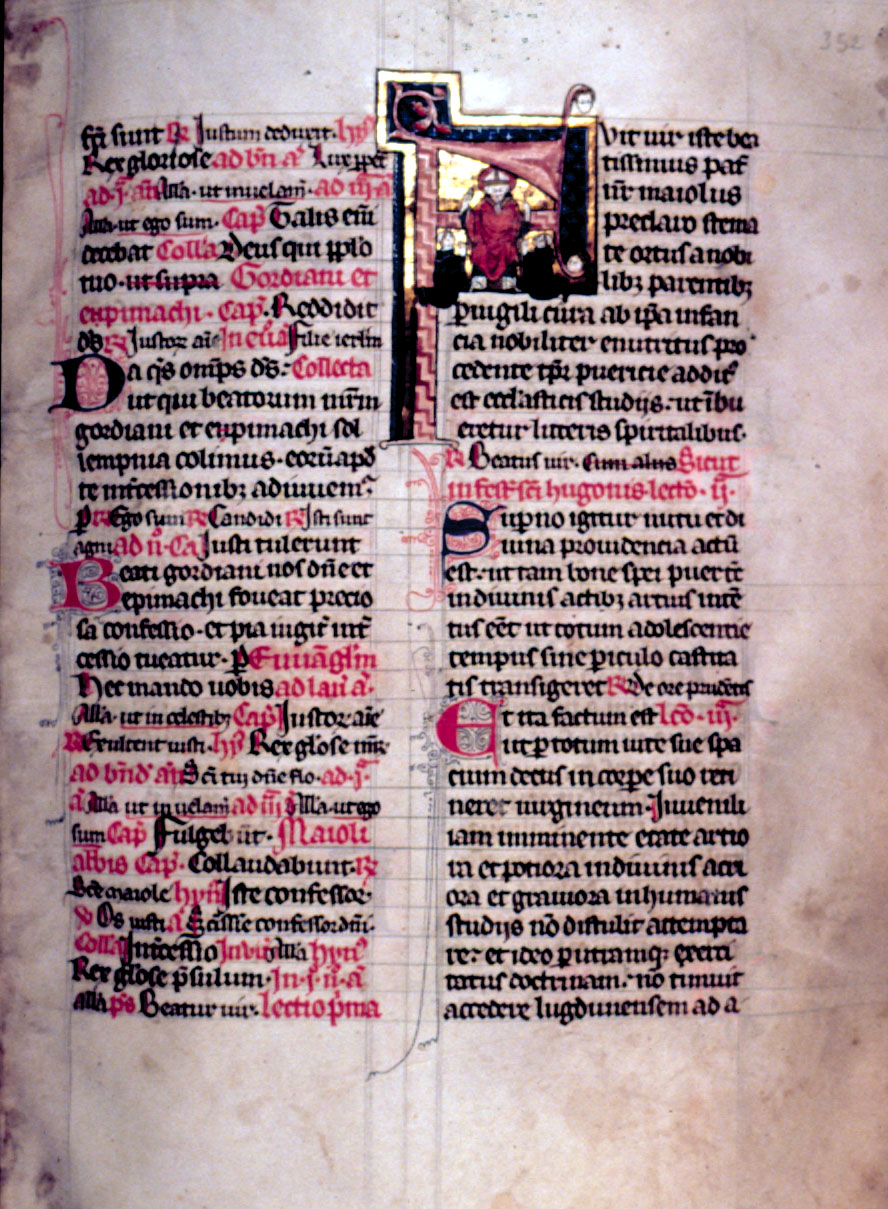 352
sunt R Iustum deduxit. hys
Rex gloriose ad bn a Lux ppet
ad. j. an Alla. ut in uelam. ad iij a
Alla. ut ego sum. Cap Talis em
decebat Colla Deus qui pplo
tuo. ut supra Gordiani et
epimachi. Cap. Reddidit
ds R Iustor aie In eua Filie ierlm
Da qs omps ds. Collecta
ut qui beatorum mrm
gordiani et epimachi sol
lempnia colimus. eor apd
te intcessionibz adiuuem
R Ego sum R Candidi R Isti sunt
agni ad n. Ca Iusti tulerunt
Beati gordiani nos dne et
epimachi foueat precio
sa confessio. et pia iugit int
cessio tueatur. p Euuaglm
Hec mando uobis ad lau a.
Alla. ut in celestibz Cap Iustor aie
R Exultent iusti. hys Rex glose mr
ad bnd an Sci tui dne flo. ad. j.
a Alla ut in uelam ad iij Alla. ut ego
sum Cap Fulgebut. Maioli
abbis Cap. Collaudabunt. R
maiole hym Iste confessor.
v Os iusti a confessor dni.
Colla Intcessio Inuit Alla hym
Rex glose psulum. In. j. n. a
alla ps Beatus uir. lectio pma
Fuit uir iste bea
tissimus pat
nr maiolus
preclaro stema
te ortus a nobi
libz parentibz
peruigili cura ab ipa infan
cia nobiliter enutritus pro
cedente tpr puericie addit
est ecclasticis studijs. ut ibu
eretur litteris spiritalibus.
R Beatus uir. cum aliis Sicut
in fest sci hugonis lecto. ij.
Superno igitur nutu et di
uina prouidencia actu
est. ut tam bone spei puer
in diuinis actibz artius inte
tus eet ut totum adolescentie
tempus sine piculo castita
tis transigeret R De ore prudentis
Et ita factum est lco. iij.
ut p totum uite sue spa
cium decus in corpe suo reti
neret uirgineum. Iuuenili
iam imminente etate artio
ra et potiora in diuinis acri
ora et grauiora in humanis
studijs no distulit attempta
re. et ideo p utramq; exerci
tatus doctrinam. no timuit
accedere lugdunensem ad a